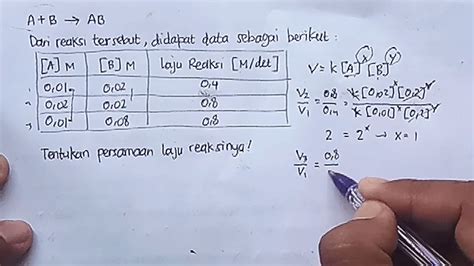 A + B → AB
Dari reaksi tersebut, didapat data sebagai berikut :
[A] M [B] M Laju Reaksi [M/det]
1. 0,01 0,02 0,4
2. 0,02 0,02 0,8
3. 0,01 0,08 0,8
Tentukan persamaan laju reaksinya!
V = k [A]^x [B]^y
V2/V1 = 0,8/0,4 = k[0,02]^x [0,2]^y / k[0,01]^x [0,2]^y
2 = 2^x → x = 1
V3/V1 = 0,8